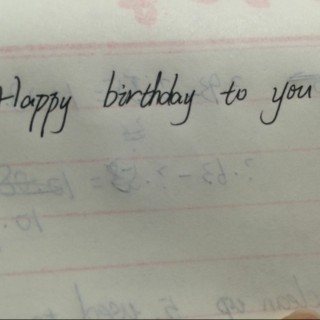 Happy birthday to you